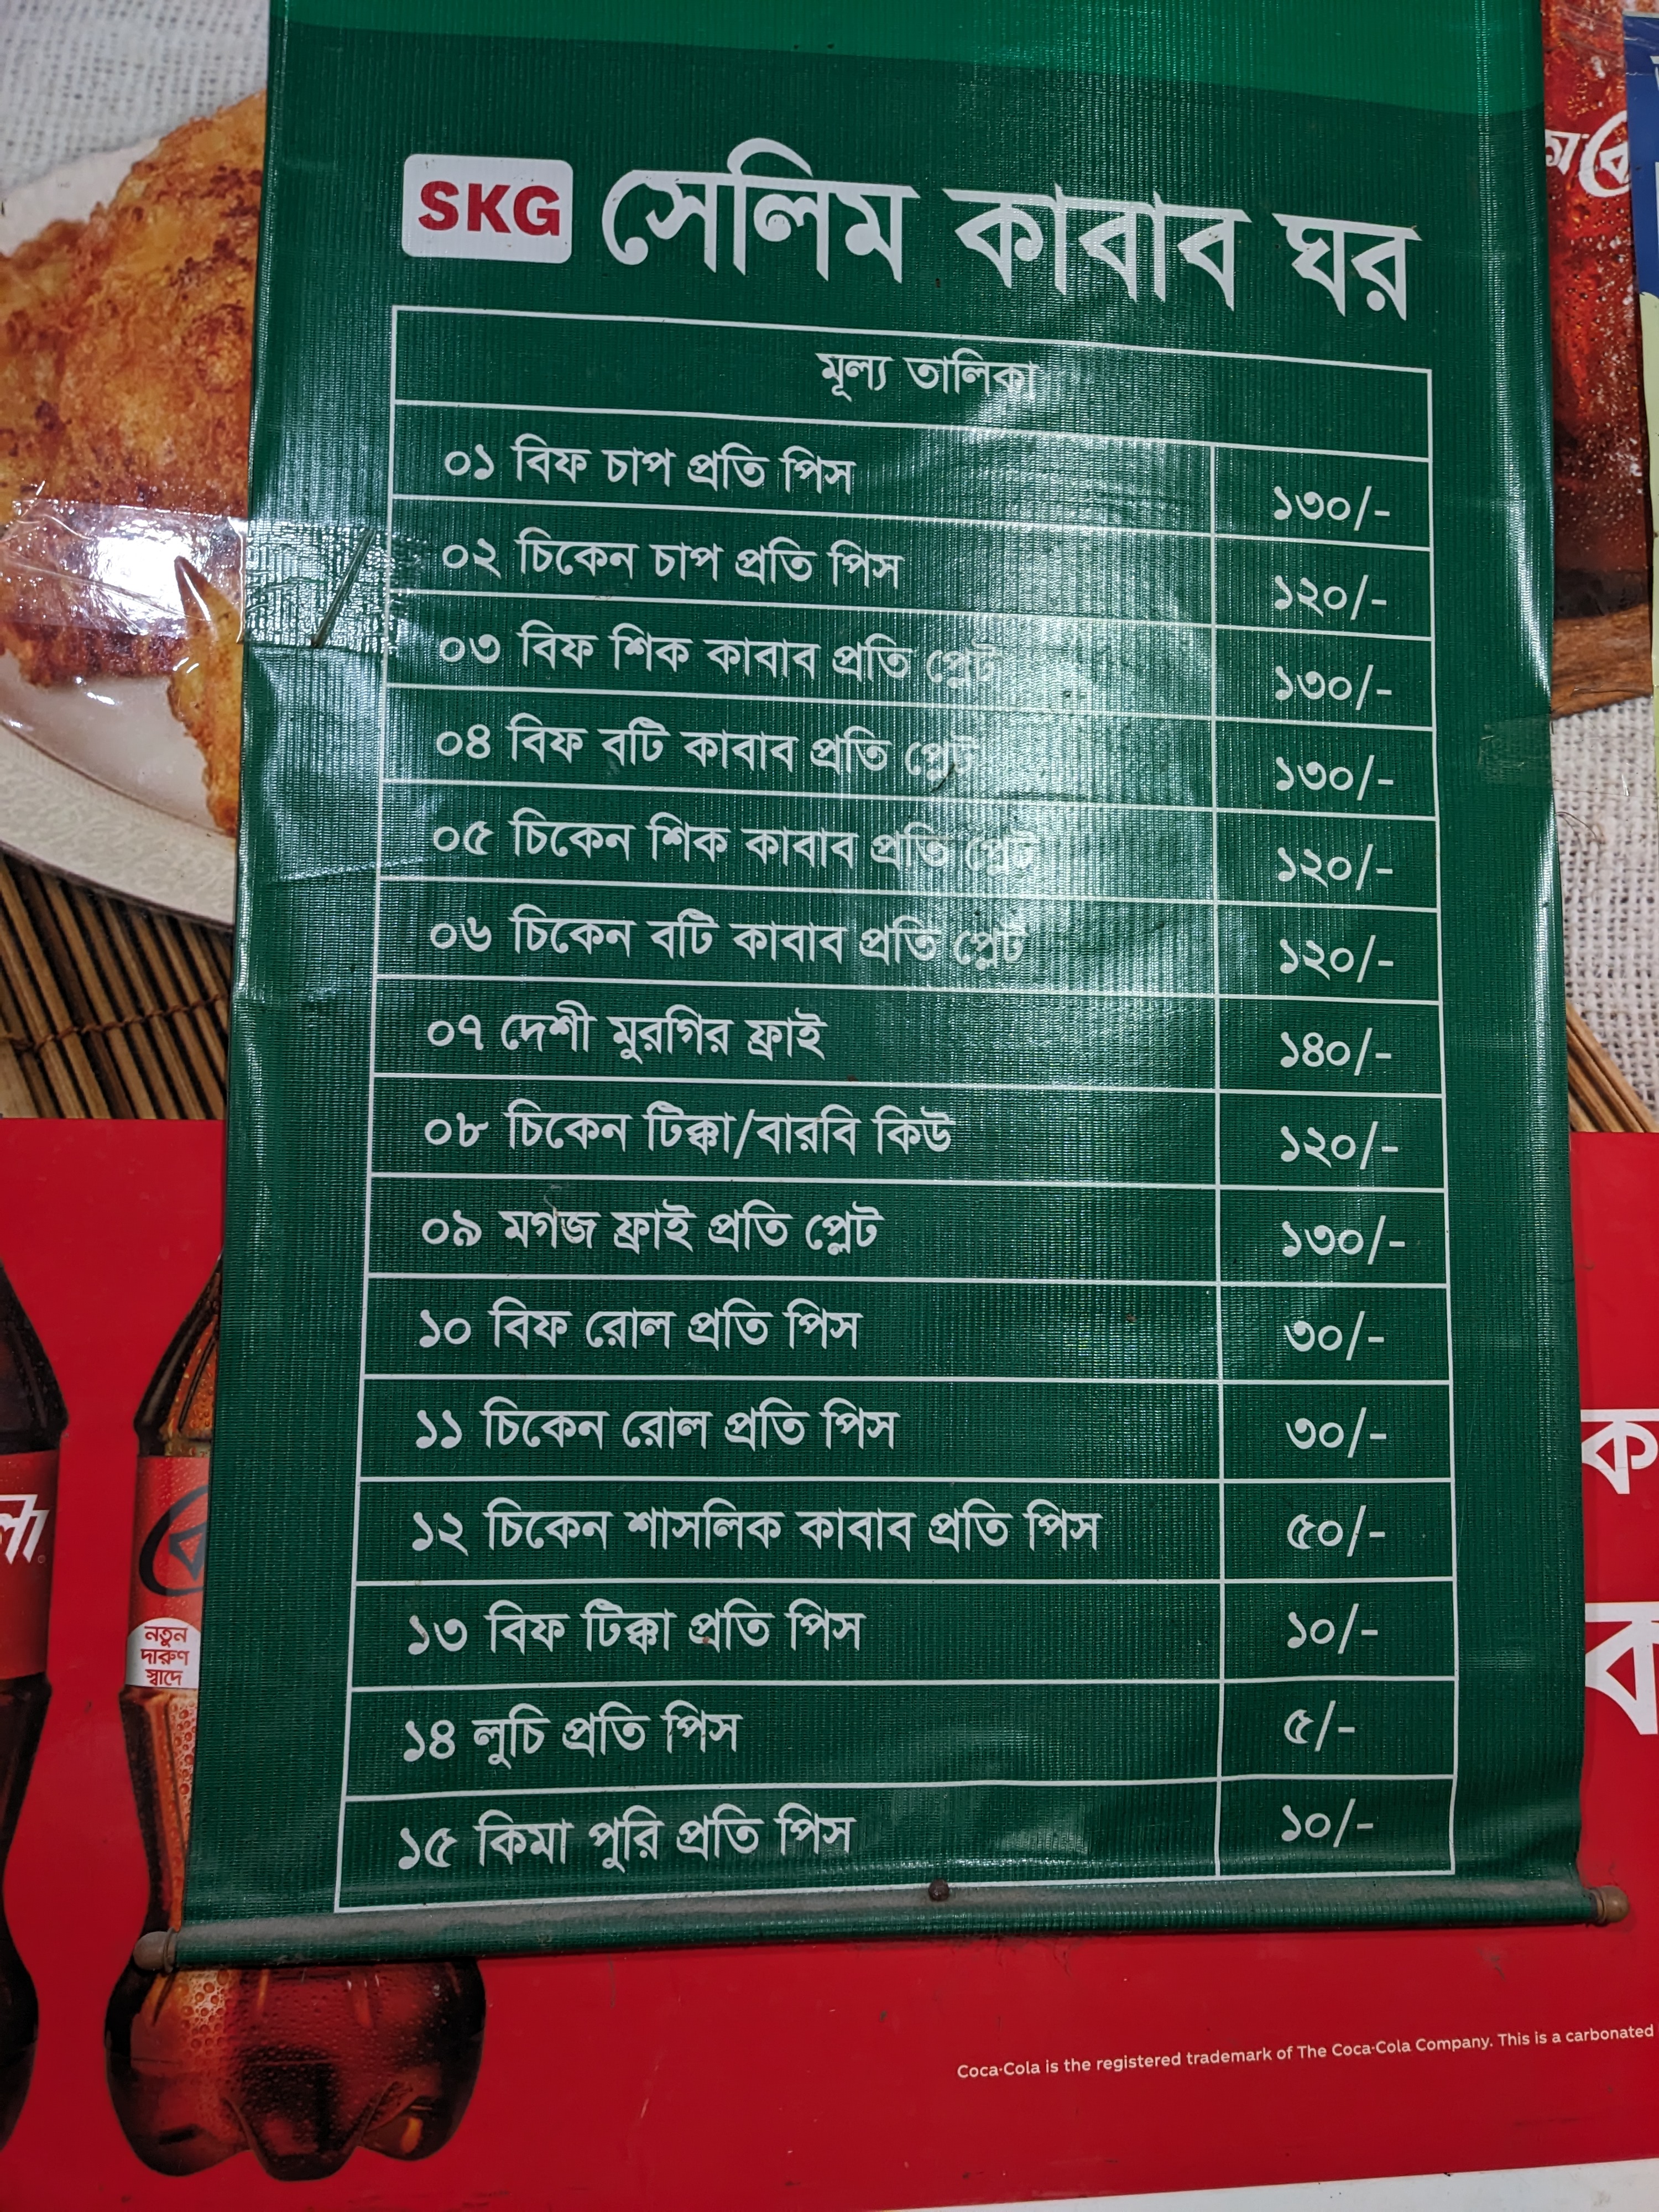 SKG সেলিম কাবাব ঘর
মূল্য তালিকা
০১ বিফ চাপ প্রতি পিস ১৩০/-
০২ চিকেন চাপ প্রতি পিস ১২০/-
০৩ বিফ শিক কাবাব প্রতি প্লেট ১৩০/-
০৪ বিফ বটি কাবাব প্রতি প্লেট ১৩০/-
০৫ চিকেন শিক কাবাব প্রতি প্লেট ১২০/-
০৬ চিকেন বটি কাবাব প্রতি প্লেট ১২০/-
০৭ দেশী মুরগির ফ্রাই ১৪০/-
০৮ চিকেন টিক্কা/বারবি কিউ ১২০/-
০৯ মগজ ফ্রাই প্রতি প্লেট ১৩০/-
১০ বিফ রোল প্রতি পিস ৩০/-
১১ চিকেন রোল প্রতি পিস ৩০/-
১২ চিকেন শাসলিক কাবাব প্রতি পিস ৫০/-
১৩ বিফ টিক্কা প্রতি পিস ১০/-
১৪ লুচি প্রতি পিস ৫/-
১৫ কিমা পুরি প্রতি পিস ১০/-
নতুন
দারুণ
স্বাদে
Coca-Cola is the registered trademark of The Coca-Cola Company. This is a carbonated